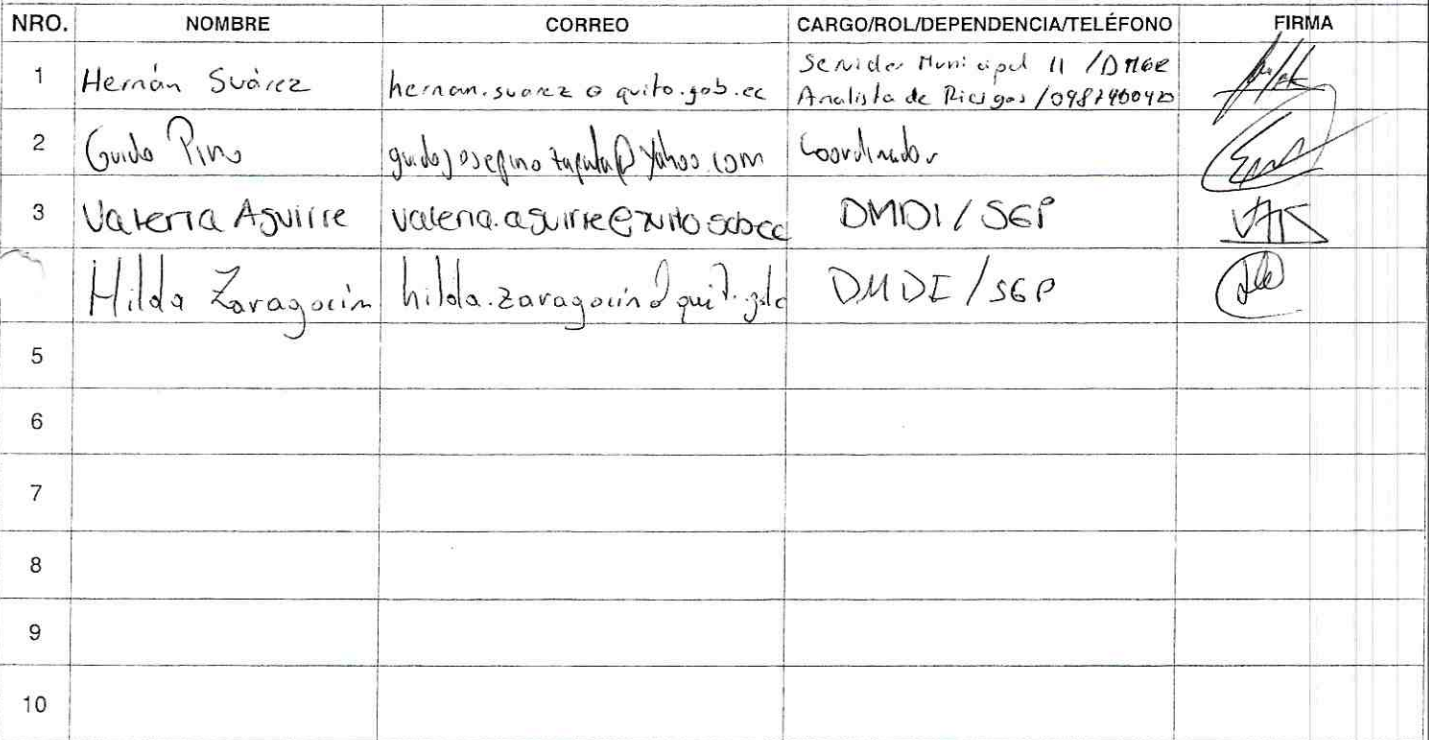 NRO. NOMBRE CORREO CARGO/ROL/DEPENDENCIA/TELÉFONO FIRMA
1 Hernán Suárez hernan.suarez@quito.gob.ec Servidor Municipal 11 /DMGR
Analista de Riesgos /0987400420
2 Guido Pino guidojosepinozapata@yahoo.com Coordinador
3 Valeria Aguirre valeria.aguirre@quito.gob.ec DMDI/SGP
Hilda Zaragocin hilda.zaragocin@ DMDI/SGP
5
6
7
8
9
10